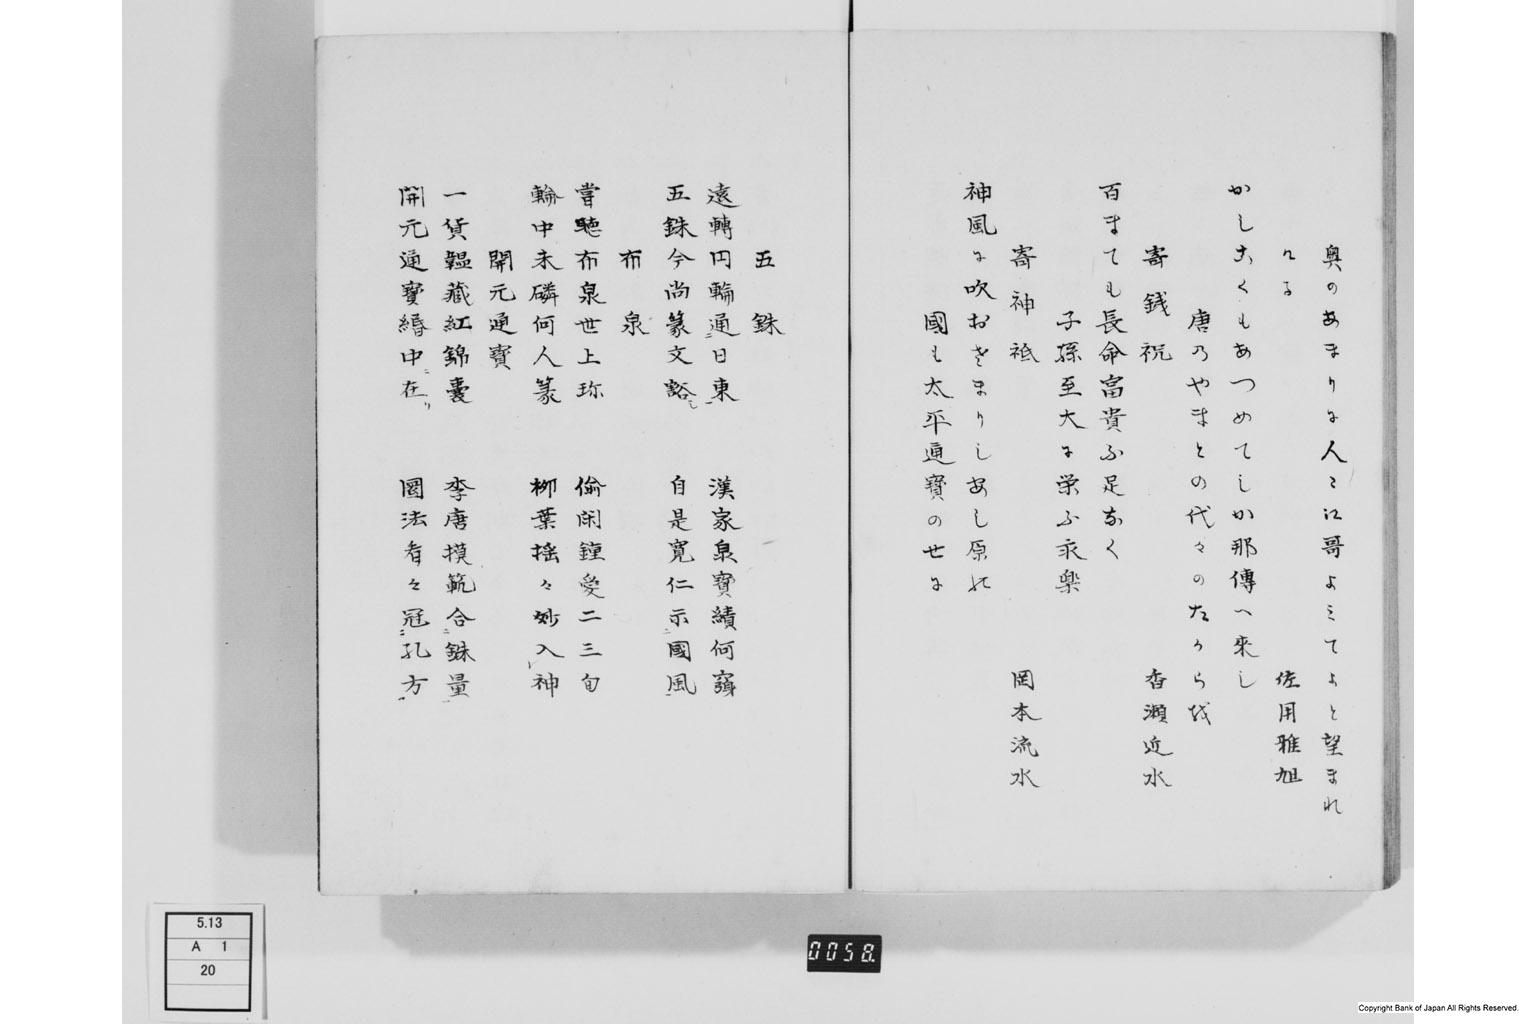 奥のあまりに人々江哥よミてよと望まれ
ける
佐用雅旭
かしこくもあつめてしか那傳へ来し
唐乃やまとの代々のたから哉
寄銭祝
香瀬近水
百まても長命富貴ふ足なく
子孫至大に栄ふ永楽
寄神祇
岡本流水
神風に吹おさまりしあし原の
國も太平通寳の世に
五銖
遠轉円輪通日東 漢家泉寳績何窮
五銖今尚篆文豁 自是寛仁示國風
布泉
嘗聴布泉世上珎 偷閑鐘愛二三旬
輪中未磷何人篆 柳葉揺々妙入神
開元通寳
一貨韞藏紅錦囊 李唐摸範合銖量
開元通寳緡中在 圜法看々冠孔方
5.13
A 1
20
0058
Copyright Bank of Japan All Rights Reserved.